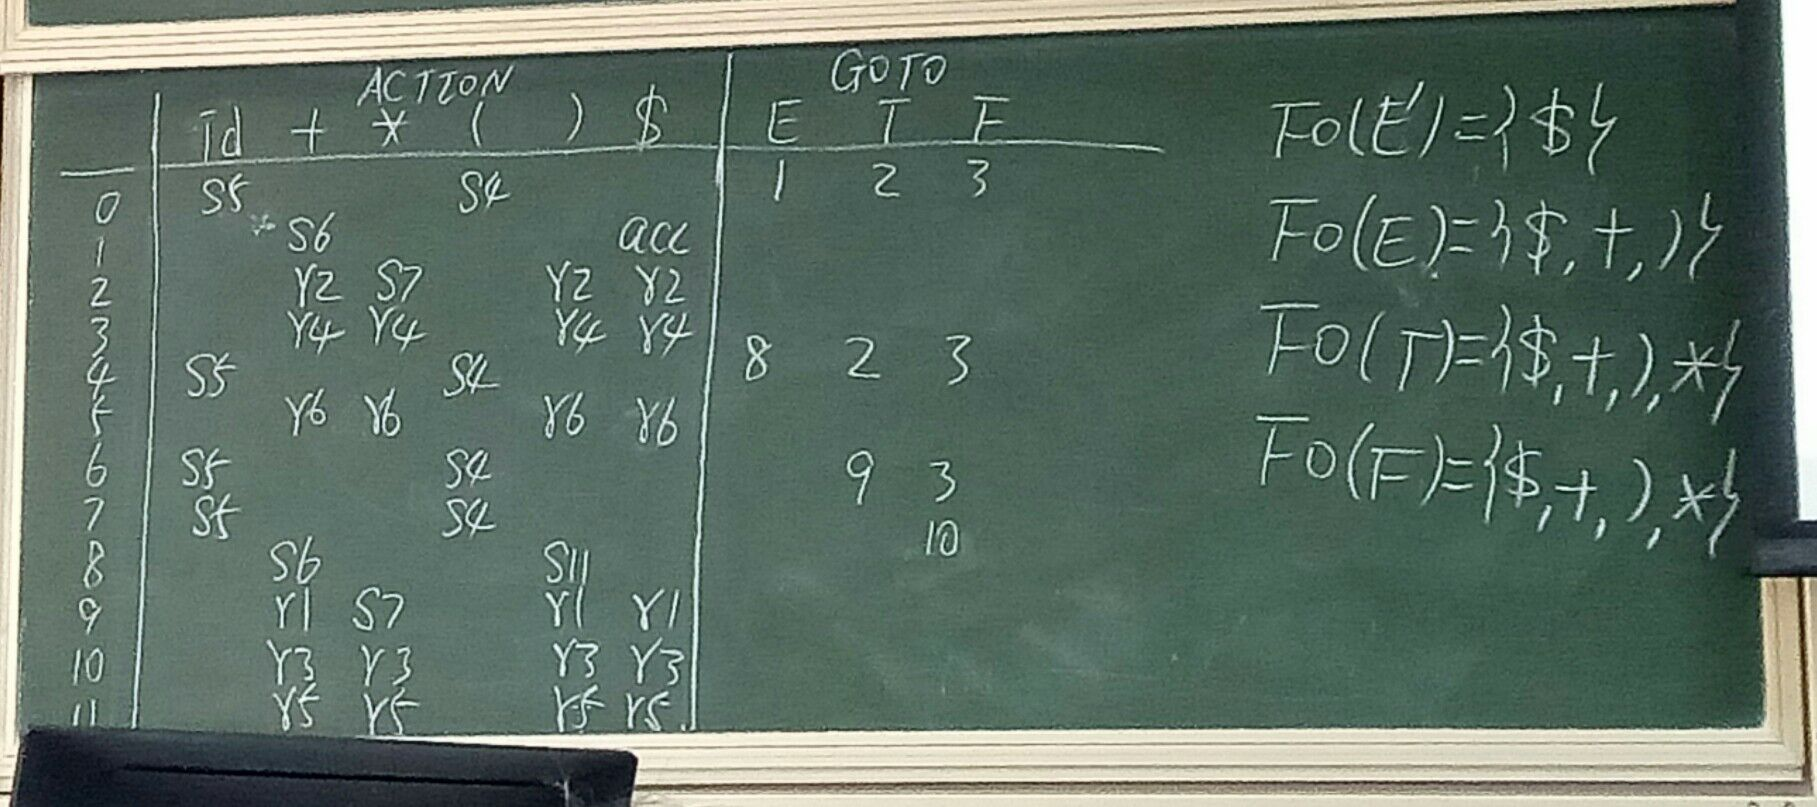 ACTION GOTO
id + * ( ) $ E T F
0 S5 S4 1 2 3
1 S6 acc
2 r2 S7 r2 r2
3 r4 r4 r4 r4
4 S5 S4 8 2 3
5 r6 r6 r6 r6
6 S5 S4 9 3
7 S5 S4 10
8 S6 S11
9 r1 S7 r1 r1
10 r3 r3 r3 r3
11 r5 r5 r5 r5
Fo(E')={$}
Fo(E)={$,+,)}
Fo(T)={$,+,),*}
Fo(F)={$,+,),*}